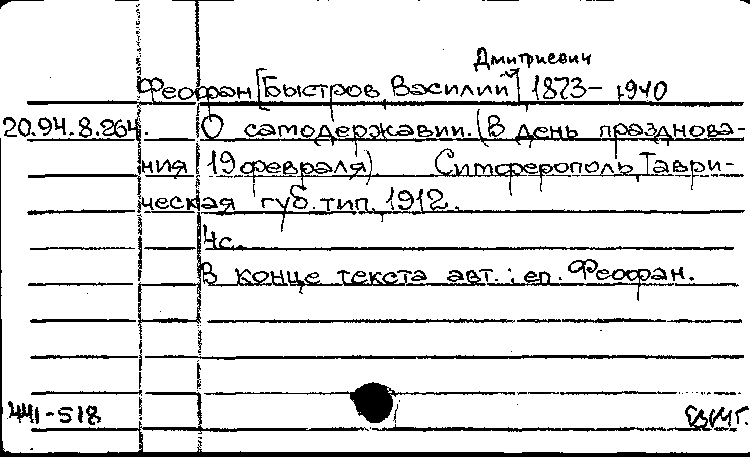 Дмитриевич
Феофан [Быстров, Василий], 1873-1940
20.94.8.264. О самодержавии. (В день празднова-
ния 19 февраля). Симферополь, Таври-
ческая губ. тип., 1912.
4с.
В конце текста авт.: еп. Феофан.
441-518